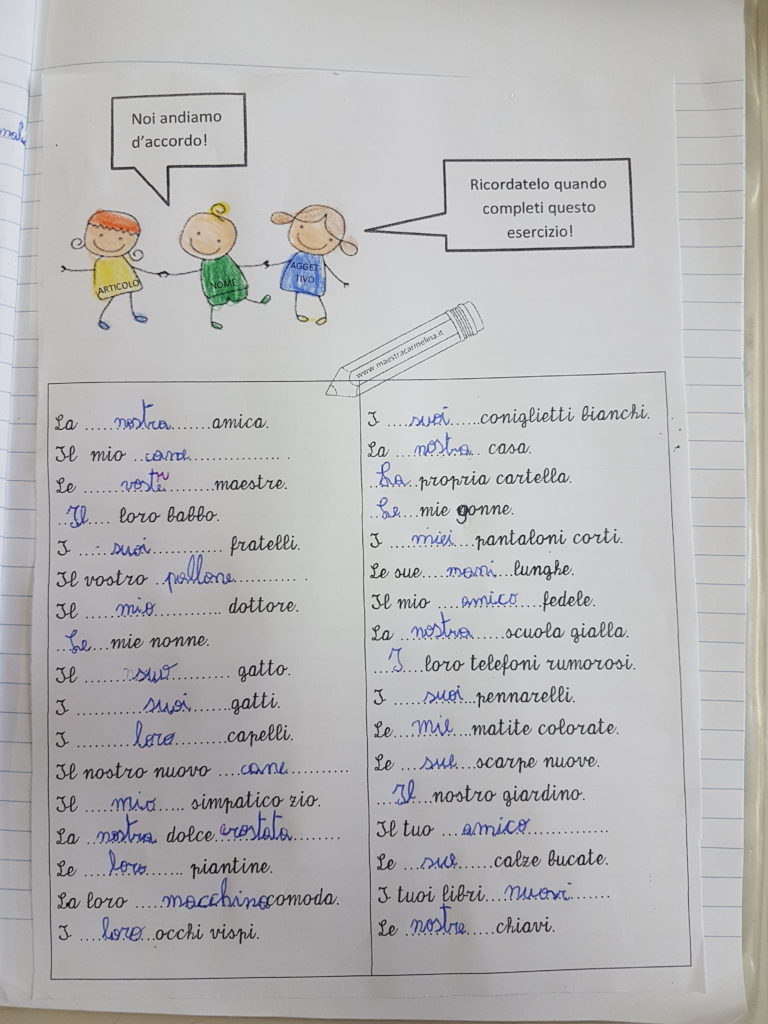 Noi andiamo
d'accordo!
Ricordatelo quando
completi questo
esercizio!
ARTICOLO
NOME
AGGET-
TIVO
www.maestracarmelina.it
La .....nostra.......amica.
Il mio ..cane................. .
Le .......vostre.........maestre.
..Il.... loro babbo.
I ...suoi............. fratelli.
Il vostro ..pallone............ .
Il ......mio........... dottore.
..Le...mie nonne.
Il ........suo.......... gatto.
I ............suoi.......gatti.
I ..........loro.........capelli.
Il nostro nuovo ....cane...........
Il .....mio..... simpatico zio.
La ..nostra dolce crostata........
Le .....loro....... piantine.
La loro .....macchina comoda.
I ....loro...occhi vispi.
I ....suoi.....coniglietti bianchi.
La ...nostra.. casa.
..La..propria cartella.
..Le...mie gonne.
I ....miei....pantaloni corti.
Le sue....mani...lunghe.
Il mio ....amico....fedele.
La ..nostra......scuola gialla.
...I...loro telefoni rumorosi.
I .....suoi..pennarelli.
Le...mie...matite colorate.
Le ...sue...scarpe nuove.
...Il...nostro giardino.
Il tuo ...amico.............
Le ...sue......calze bucate.
I tuoi libri...nuovi.......
Le ..nostre.....chiavi.